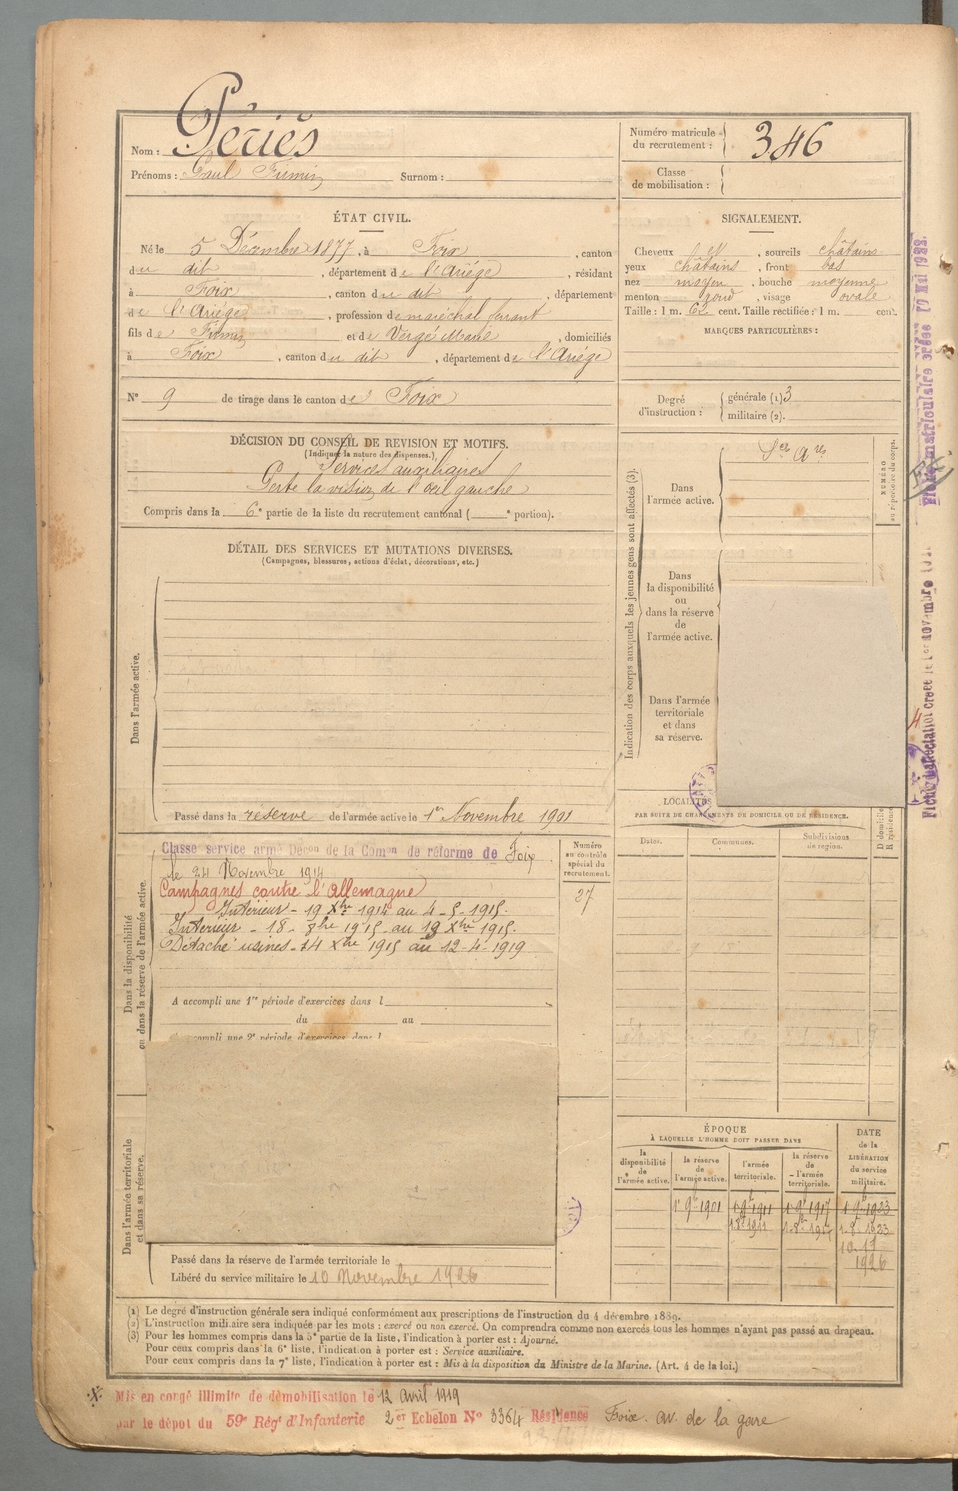 Nom : Périés
Prénoms : Paul Firmin Surnom :
Numéro matricule du recrutement : 346
Classe de mobilisation :
ÉTAT CIVIL.
Né le 5 Décembre 1877, à Foix, canton
du dit, département de l'Ariége, résidant
à Foix, canton du dit, département
de l'Ariége, profession de maréchal ferrant
fils de Firmin et de Vergé Marie, domiciliés
à Foix, canton du dit, département de l'Ariége
N° 9 de tirage dans le canton de Foix
SIGNALEMENT.
Cheveux et, sourcils châtains
yeux châtains, front bas
nez moyen, bouche moyenne
menton rond, visage ovale
Taille : 1 m. 62 cent. Taille rectifiée : 1 m. cent.
MARQUES PARTICULIÈRES :
Degré d'instruction : générale (1) 3
militaire (2).
DÉCISION DU CONSEIL DE REVISION ET MOTIFS.
(Indiquer la nature des dispenses.)
Services auxiliaires
Perte la vision de l'œil gauche
Compris dans la 6e partie de la liste du recrutement cantonal ( e portion).
DÉTAIL DES SERVICES ET MUTATIONS DIVERSES.
(Campagnes, blessures, actions d'éclat, décorations, etc.)
Dans l'armée active.
Passé dans la réserve de l'armée active le 1er Novembre 1901
Indication des corps auxquels les jeunes gens sont affectés (3).
Dans l'armée active.
NUMÉRO au répertoire du corps.
Dans la disponibilité ou dans la réserve de l'armée active.
Dans l'armée territoriale et dans sa réserve.
Dans la disponibilité ou dans la réserve de l'armée active.
Classé service armé Décon de la Commn de réforme de Foix
le 24 Novembre 1914
Campagnes contre l'Allemagne
Intérieur - 19 Xbre 1914 au 4-5-1915.
Intérieur - 18- 8bre 1915 au 13 Xbre 1915.
Détaché usines - 14 Xbre 1915 au 12-4-1919
Numéro au contrôle spécial du recrutement.
27
A accompli une 1re période d'exercices dans l
du au
LOCALITÉS
PAR SUITE DE CHANGEMENTS DE DOMICILE OU DE RÉSIDENCE.
Dates. Communes. Subdivisions de région. D domicile R résidence
Dans l'armée territoriale et dans sa réserve.
Passé dans la réserve de l'armée territoriale le
Libéré du service militaire le 10 Novembre 1926
ÉPOQUE
À LAQUELLE L'HOMME DOIT PASSER DANS
la disponibilité de l'armée active.
la réserve de l'armée active.
l'armée territoriale.
la réserve de l'armée territoriale.
DATE de la LIBÉRATION du service militaire.
1er 9b 1901 1er 9b 1911 1er 9b 1917 1er 9b 1923
1-8b 1911 1-8b 1917 1-8-1923
10-11
1926
(1) Le degré d'instruction générale sera indiqué conformément aux prescriptions de l'instruction du 4 décembre 1889.
(2) L'instruction militaire sera indiquée par les mots : exercé ou non exercé. On comprendra comme non exercés tous les hommes n'ayant pas passé au drapeau.
(3) Pour les hommes compris dans la 5e partie de la liste, l'indication à porter est : Ajourné.
Pour ceux compris dans la 6e liste, l'indication à porter est : Service auxiliaire.
Pour ceux compris dans la 7e liste, l'indication à porter est : Mis à la disposition du Ministre de la Marine. (Art. 4 de la loi.)
Mis en congé illimité de démobilisation le 12 avril 1919
par le dépot du 59e Régt d'Infanterie 2er Echelon No 3364 Résidence Foix av. de la gare